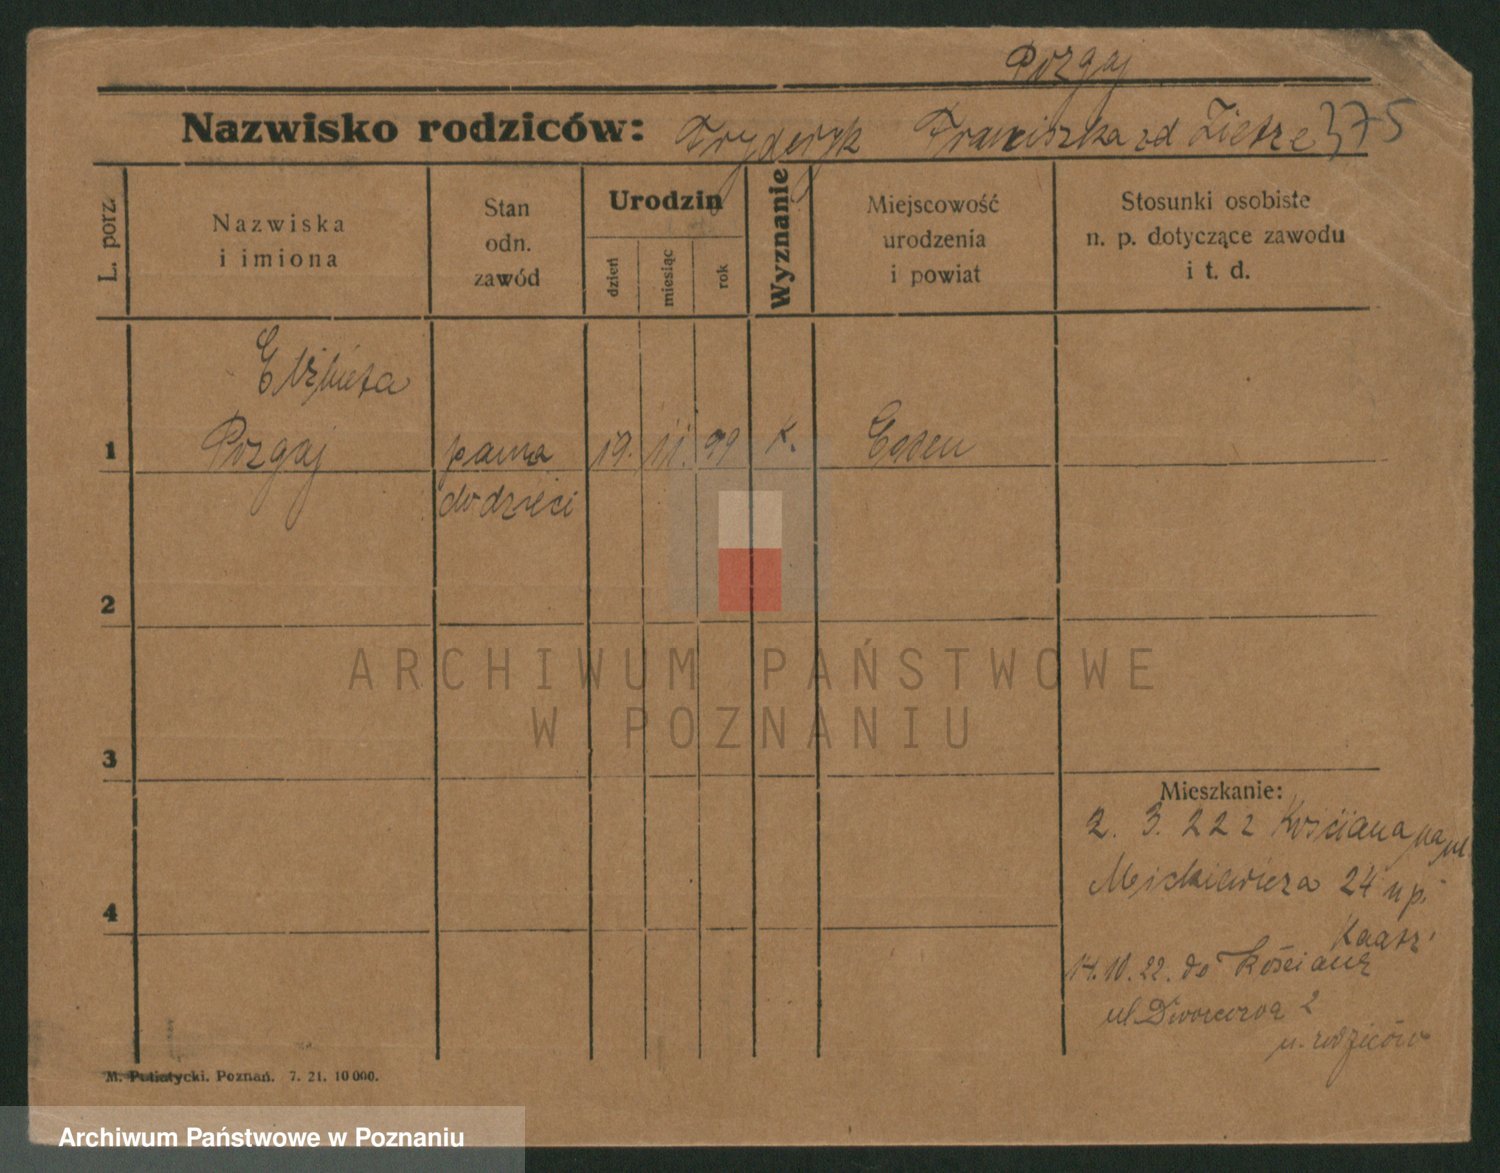 Pozgaj
Nazwisko rodziców: Fryderyk Franciszka zd Zietze 375
L. porz.
Nazwiska
i imiona
Stan
odn.
zawód
Urodzin
dzień
miesiąc
rok
Wyznanie
Miejscowość
urodzenia
i powiat
Stosunki osobiste
n. p. dotyczące zawodu
i t. d.
Elżbieta
1 Pozgaj panna 19. 11. 99 K. Essen
do dzieci
2
3
4
Mieszkanie:
2. 3. 22 z Kościana na ul.
Mickiewicza 24 u p.
14.10.22. do Kościana
ul. Dworcowa 2
u. rodziców
M. Putiatycki. Poznań. 7. 21. 10 000.
ARCHIWUM PAŃSTWOWE
W POZNANIU
Archiwum Państwowe w Poznaniu